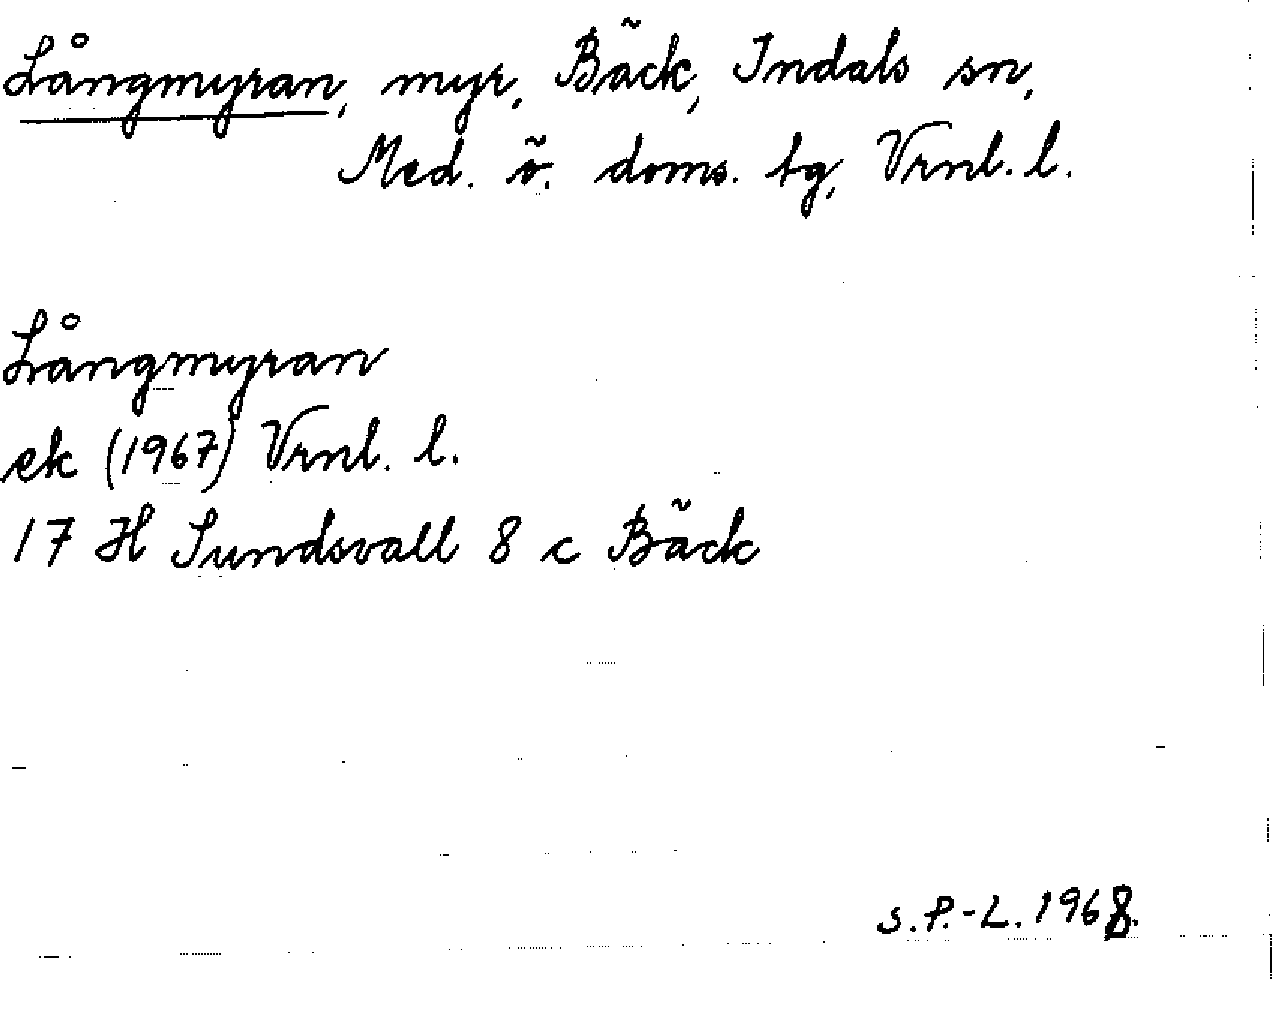 Långmyran, myr, Bäck, Indals sn,
Med. ö. doms. tg, Vrnl. l.
Långmyran
ek (1967) Vrnl. l.
17 H Sundsvall 8 c Bäck
S.P.-L. 1968.